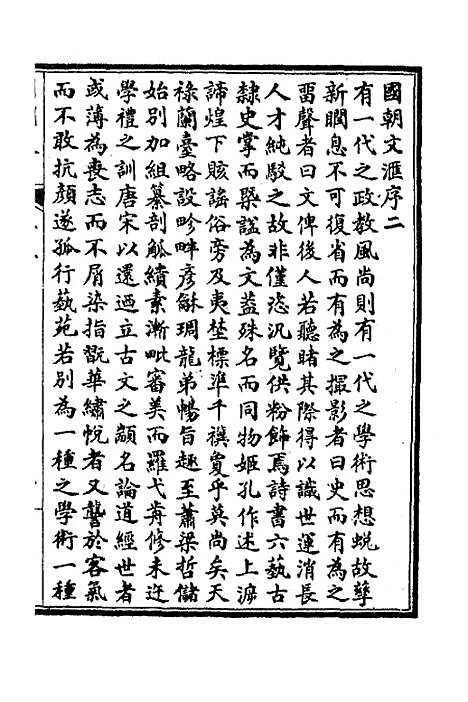 國朝文滙序二
有一代之政教風尚則有一代之學術思想蛻故孳
新瞯息不可復省而有為之撮影者曰史而有為之
畱聲者曰文俾後人若聽睹其際得以識世運消長
人才純駁之故非僅恣汎覽供粉飾焉詩書六藝古
隸史掌而槩謚為文葢殊名而同物姬孔作述上源
諦煌下賅謠俗旁及夷埜標準千禩敻乎莫尚矣天
祿蘭臺略設畛畔彥龢琱龍弟暢旨趣至蕭梁哲儲
始別加組纂剖觚續素漸毗審美而羅弋肯修未迕
學禮之訓唐宋以還迺立古文之顓名論道經世者
或薄為喪志而不屑染指翫華繡帨者又讋於客氣
而不敢抗顏遂孤行藝苑若別為一種之學術一種